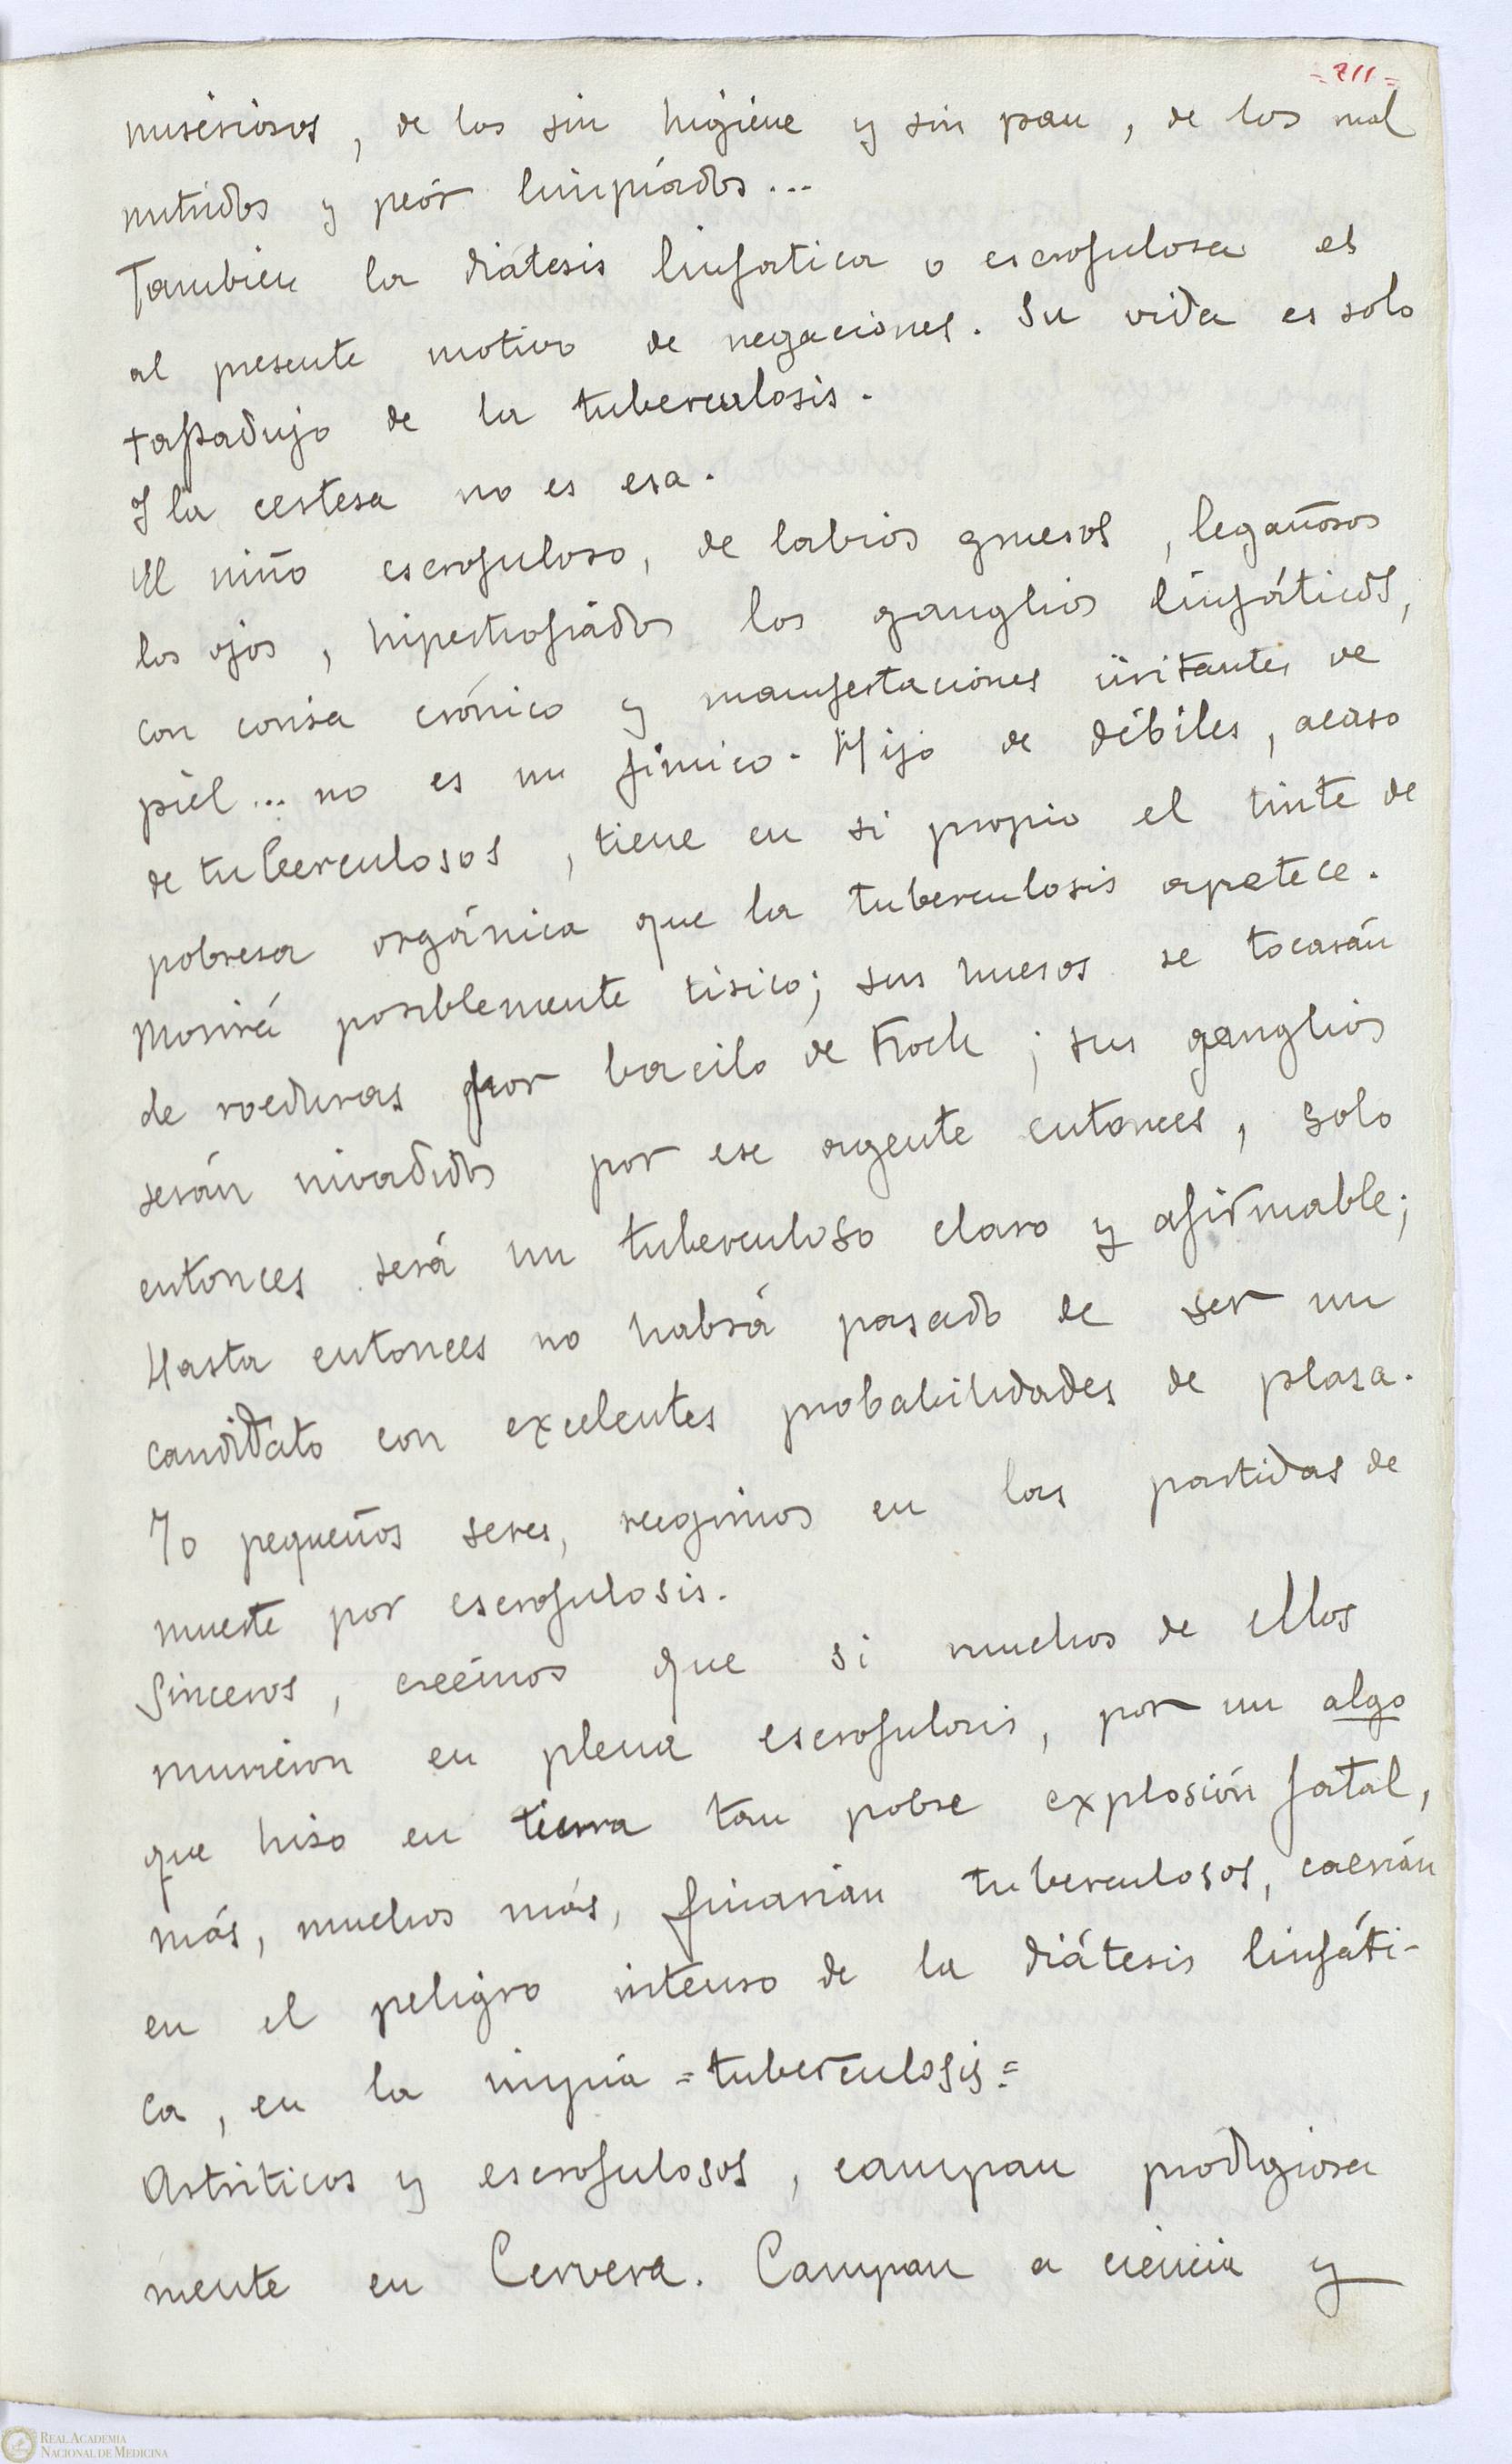 = 211 =
miseriosos, de los sin higiéne y sin pan, de los mal
nutridos y peór limpiádos...
Tambien la diátesis linfatica o escrofulosa es
al presente motivo de negaciónes. Su vida es solo
tapadujo de la tuberculosis.
Y la certesa no es esa.
El niño escrofuloso, de labios gruesos, legañosos
los ojos, hipertrofiádos los ganglios linfáticos,
con corisa crónico y manifestaciónes irritantes de
piel... no es un fimico. Hijo de débiles, acaso
de tuberculosos, tiene en si propio el tinte de
pobresa orgánica que la tuberculosis apetece.
Morirá posiblemente tisico; sus huesos se tocarán
de roeduras por bacilo de Koch; sus ganglios
serán invadidos por ese agente entonces, solo
entonces será un tuberculoso claro y afirmable;
Hasta entonces no habrá pasado de ser un
candidato con excelentes probabilidades de plasa.
70 pequeños seres, recogimos en las partidas de
muerte por escrofulosis.
Sinceros, creémos que si muchos de ellos
murieron en plena escrofulosis, por un algo
que hiso en tierra tan pobre explosión fatal,
más, muchos más, finarian tuberculosos, caerián
en el peligro intenso de la diátesis linfáti-
ca, en la impia = tuberculosis =
Artriticos y escrofulosos, campan prodigiosa
mente en Cervera. Campan a ciencia y
REAL ACADEMIA
NACIONAL DE MEDICINA